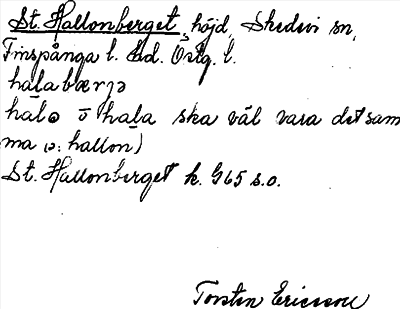 St. Hallonberget, höjd, Skedevi sn,
Finspånga l. hd. Östg. l.
halabærjə
halə o hala ska väl vara detsam
ma (ɔ: hallon)
St. Hallonberget k. G65 s.o.
Torsten Ericsson